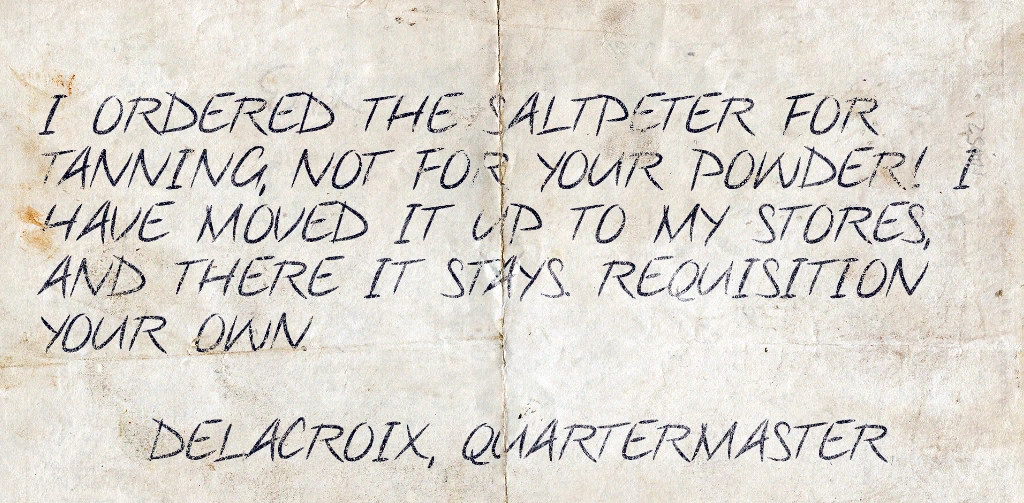 I ORDERED THE SALTPETER FOR
TANNING, NOT FOR YOUR POWDER! I
HAVE MOVED IT UP TO MY STORES,
AND THERE IT STAYS. REQUISITION
YOUR OWN
DELACROIX, QUARTERMASTER